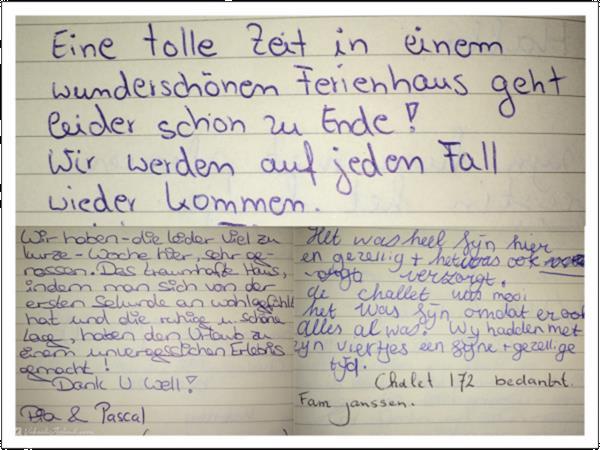 Eine tolle Zeit in einem
wunderschönen Ferienhaus geht
leider schon zu Ende!
Wir werden auf jeden Fall
wieder kommen.
Wir haben - die leider viel zu
kurze - Woche hier, sehr ge-
nossen. Das traumhafte Haus,
indem man sich von der
ersten Sekunde an wohlgefühlt
hat und die ruhige u. schöne
Lage, haben den Urlaub zu
einem unvergesslichen Erlebnis
gemacht!
Dank U Well!
& Pascal
Het was heel fijn hier
en gezellig + het was ook
verzorgt.
de challet was mooi
het was fijn omdat er ook
alles al was. Wy hadden met
zijn viertjes een fijne + gezellige
tyd.
Chalet 172 bedankt.
Fam janssen.